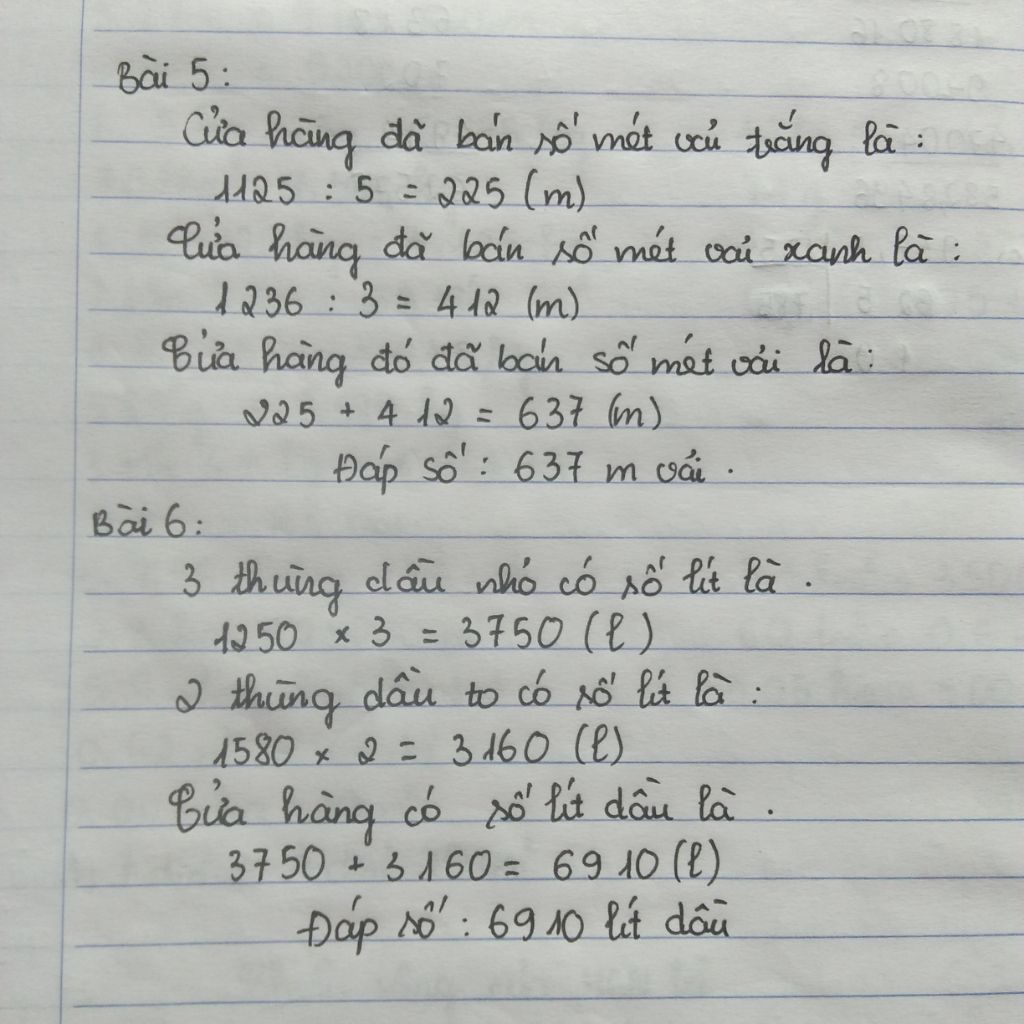 Bài 5:
Cửa hàng đã bán số mét vải trắng là:
1125 : 5 = 225 (m)
Cửa hàng đã bán số mét vải xanh là:
1236 : 3 = 412 (m)
Cửa hàng đó đã bán số mét vải là:
225 + 412 = 637 (m)
Đáp số: 637 m vải.
Bài 6:
3 thùng dầu nhỏ có số lít là.
1250 × 3 = 3750 (l)
2 thùng dầu to có số lít là:
1580 × 2 = 3160 (l)
Cửa hàng có số lít dầu là.
3750 + 3160 = 6910 (l)
Đáp số: 6910 lít dầu